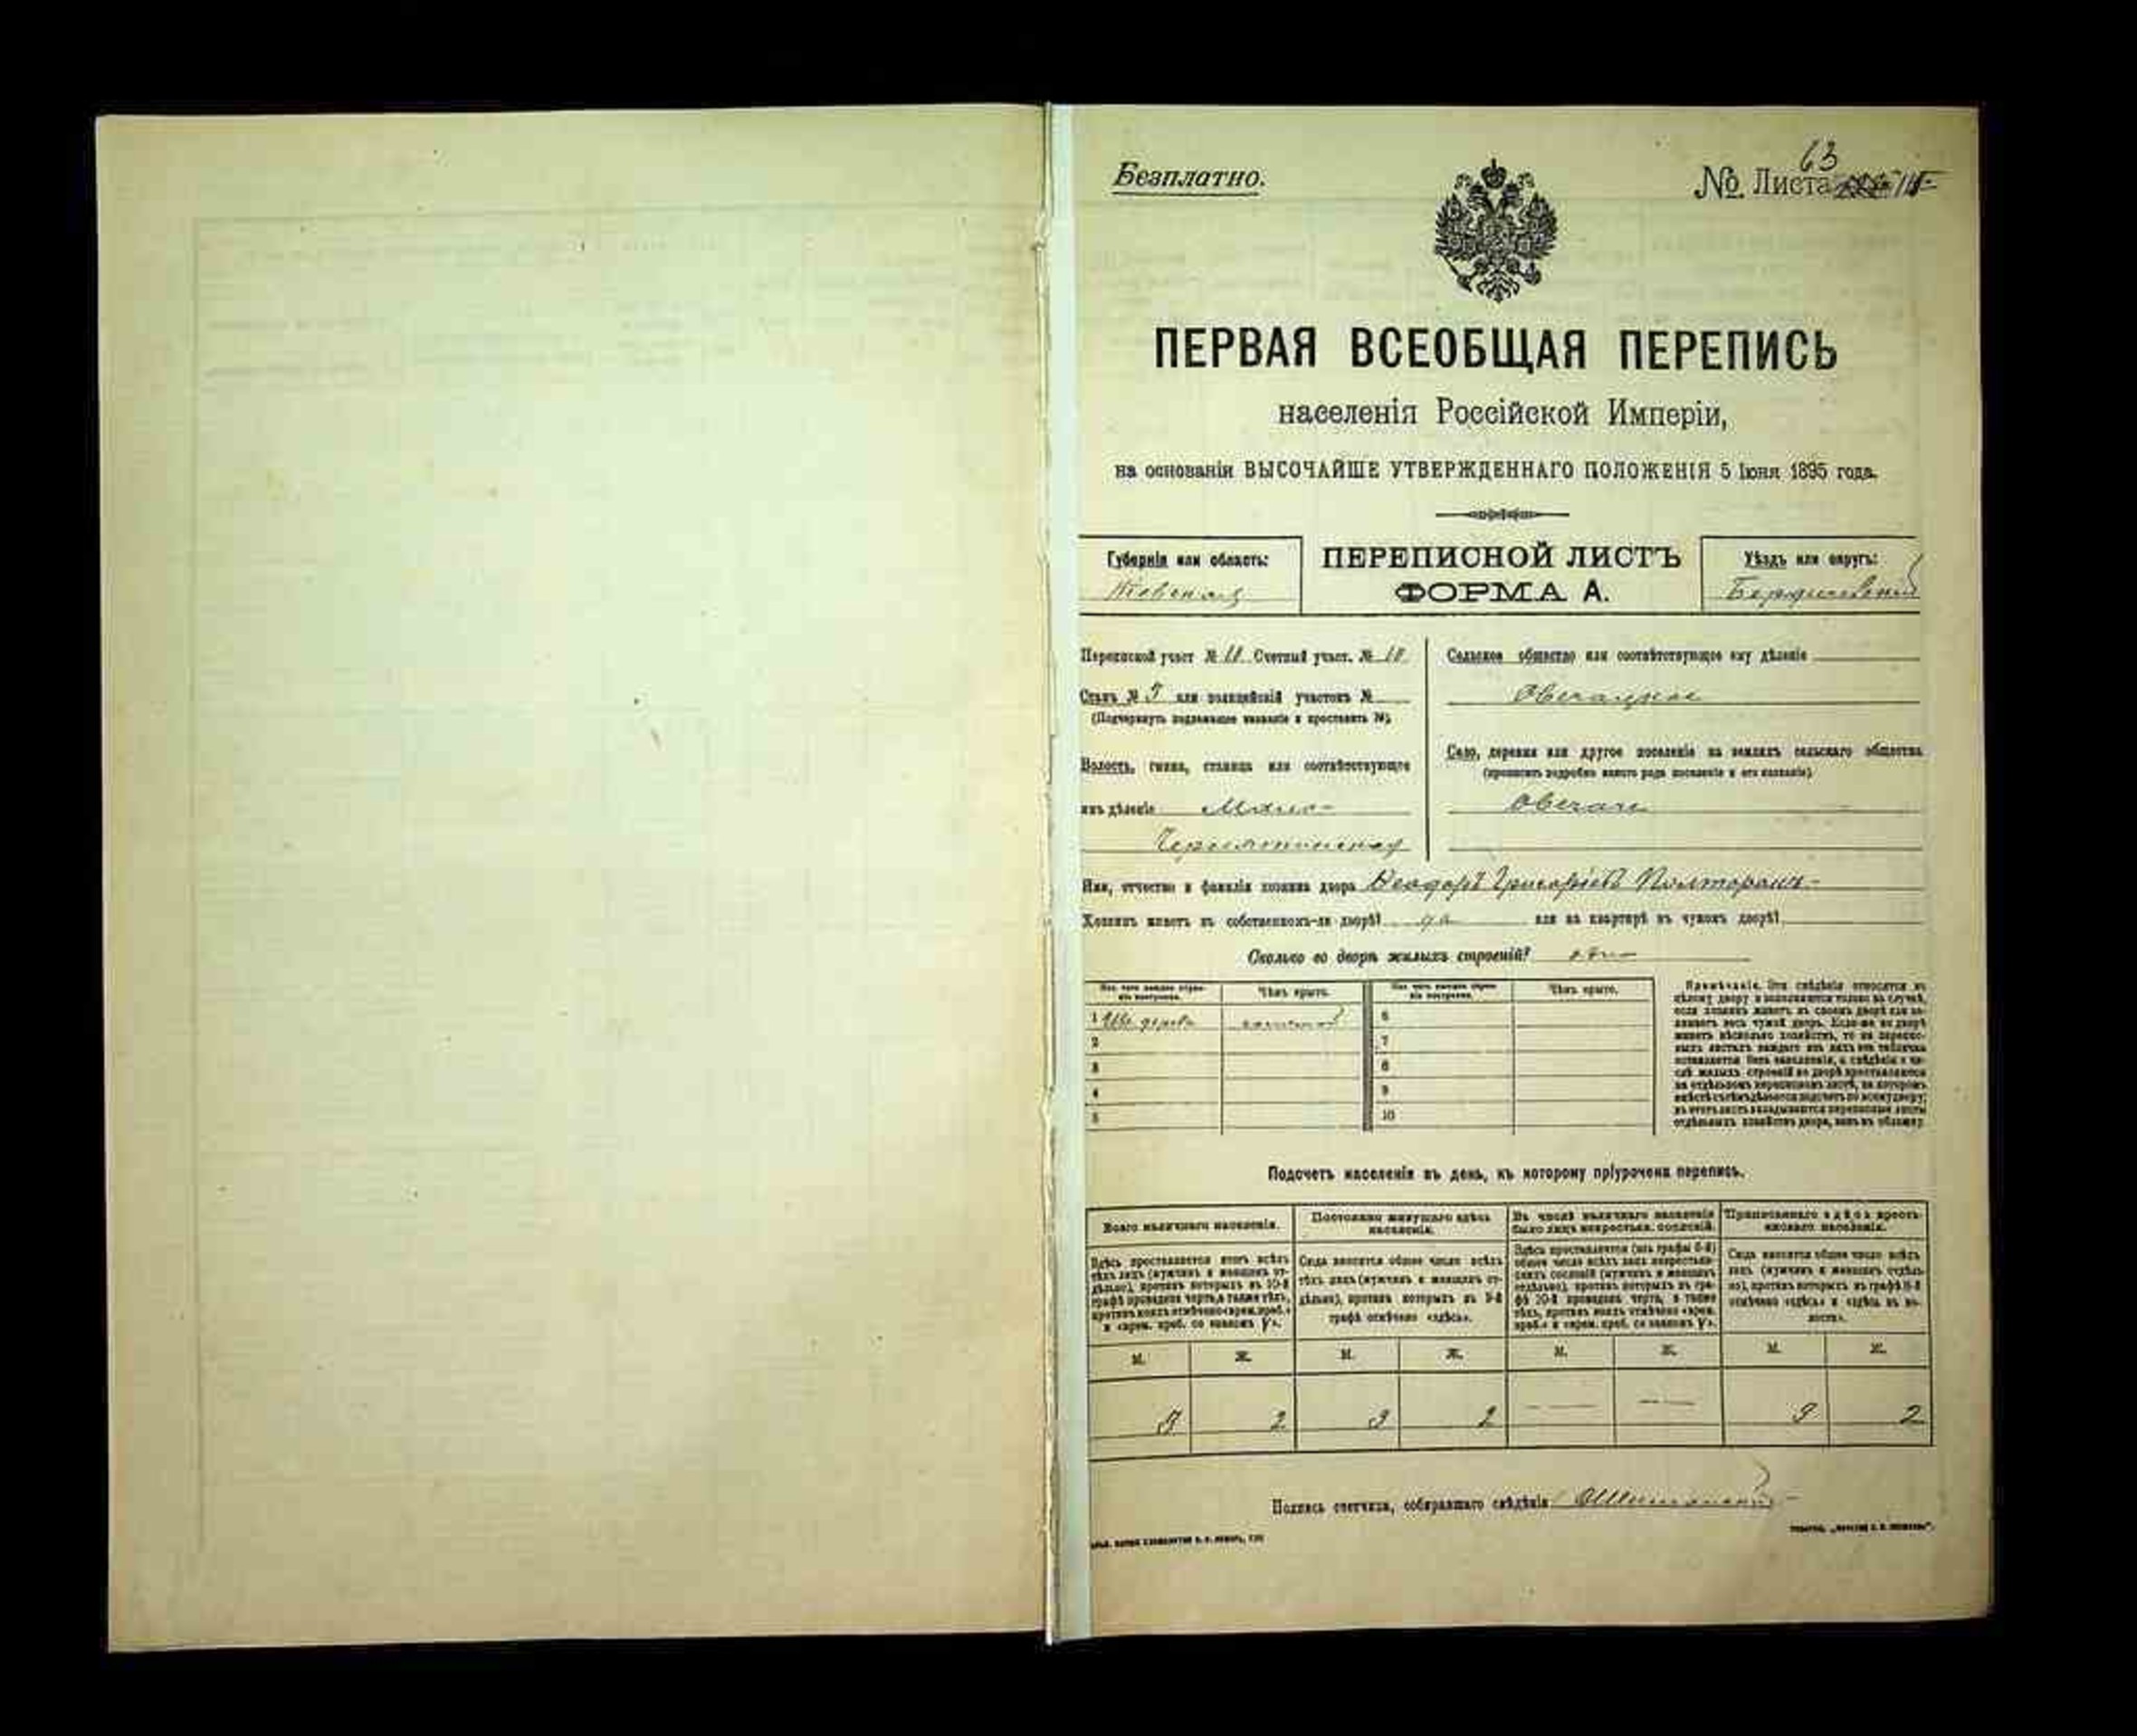 Безплатно.
№ Листа 63
ПЕРВАЯ ВСЕОБЩАЯ ПЕРЕПИСЬ
населенія Россійской Имперіи,
на основаніи ВЫСОЧАЙШЕ УТВЕРЖДЕННАГО ПОЛОЖЕНІЯ 5 Іюня 1895 года.
Губернія или область:
Кіевская
ПЕРЕПИСНОЙ ЛИСТЪ
ФОРМА А.
Уѣздъ или округъ:
Бердичевскій
Переписной участ № 10 Счетный участ. № 10
Станъ № 5 или полицейскій участокъ №
(Подчеркнуть подлежащее названіе и проставить №).
Волость, гмина, станица или соотвѣтствующее
имъ дѣленіе Мало-
Чернятинская
Сельское общество или соотвѣтствующее ему дѣленіе
Овечацкое
Село, деревня или другое поселеніе на земляхъ сельскаго общества
(прописать подробно какого рода поселеніе и его названіе).
Овечаче
Имя, отчество и фамилія хозяина двора Феодоръ Григорьевъ Полторакъ
Хозяинъ живетъ въ собственномъ-ли дворѣ? да или на квартирѣ въ чужомъ дворѣ?
Сколько во дворѣ жилыхъ строеній? одно
Изъ чего каждое строеніе построено. Чѣмъ крыто. Изъ чего каждое строеніе построено. Чѣмъ крыто.
1 Изъ дерева соломой 6
2 7
3 8
4 9
5 10
Примѣчаніе. Эти свѣдѣнія относятся къ
цѣлому двору и заполняются только въ случаѣ,
если хозяинъ живетъ въ своемъ дворѣ или за-
нимаетъ весь чужой дворъ. Если-же во дворѣ
живетъ нѣсколько хозяйствъ, то на перепис-
ныхъ листахъ каждаго изъ нихъ эта табличка
оставляется безъ заполненія, а свѣдѣнія о чи-
слѣ жилыхъ строеній во дворѣ проставляются
на отдѣльномъ переписномъ листѣ, на которомъ
вмѣстѣ съ тѣмъ дѣлается подсчетъ по всему двору;
въ этотъ листъ вкладываются переписные листы
отдѣльныхъ хозяйствъ двора, какъ въ обложку.
Подсчетъ населенія въ день, къ которому пріурочена перепись.
Всего наличнаго населенія.
Здѣсь проставляется итогъ всѣхъ
тѣхъ лицъ (мужчинъ и женщинъ от-
дѣльно), противъ которыхъ въ 10-й
графѣ проведена черта, а также тѣхъ,
противъ коихъ отмѣчено «врем. преб.»
и «врем. преб. со знакомъ V».
Постоянно живущаго здѣсь
населенія.
Сюда вносится общее число всѣхъ
тѣхъ лицъ (мужчинъ и женщинъ от-
дѣльно), противъ которыхъ въ 9-й
графѣ отмѣчено «здѣсь».
Въ числѣ наличнаго населенія
было лицъ некрестьян. сословій.
Здѣсь проставляется (изъ графы 6-й)
общее число всѣхъ лицъ некрестьян-
скихъ сословій (мужчинъ и женщинъ
отдѣльно), противъ которыхъ въ гра-
фѣ 10-й проведена черта, а также
тѣхъ, противъ коихъ отмѣчено «врем.
преб.» и «врем. преб. со знакомъ V».
Приписаннаго здѣсь кресть-
янскаго населенія.
Сюда вносится общее число всѣхъ
лицъ (мужчинъ и женщинъ отдѣль-
но), противъ которыхъ въ графѣ 8-й
отмѣчено «здѣсь» и «здѣсь въ во-
лости».
М. Ж. М. Ж. М. Ж. М. Ж.
2 3 2 — — 2
Подпись счетчика, собиравшаго свѣдѣнія